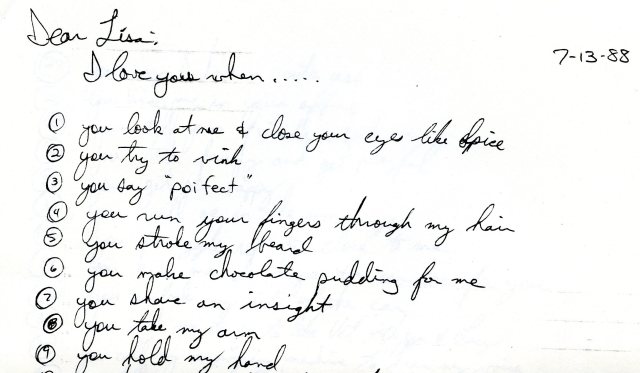 Dear Lisa:
7-13-88
I love you when.....
① you look at me & close your eyes like Spice
② you try to wink
③ you say "poifect"
④ you run your fingers through my hair
⑤ you stroke my beard
⑥ you make chocolate pudding for me
⑦ you share an insight
⑧ you take my arm
⑨ you hold my hand